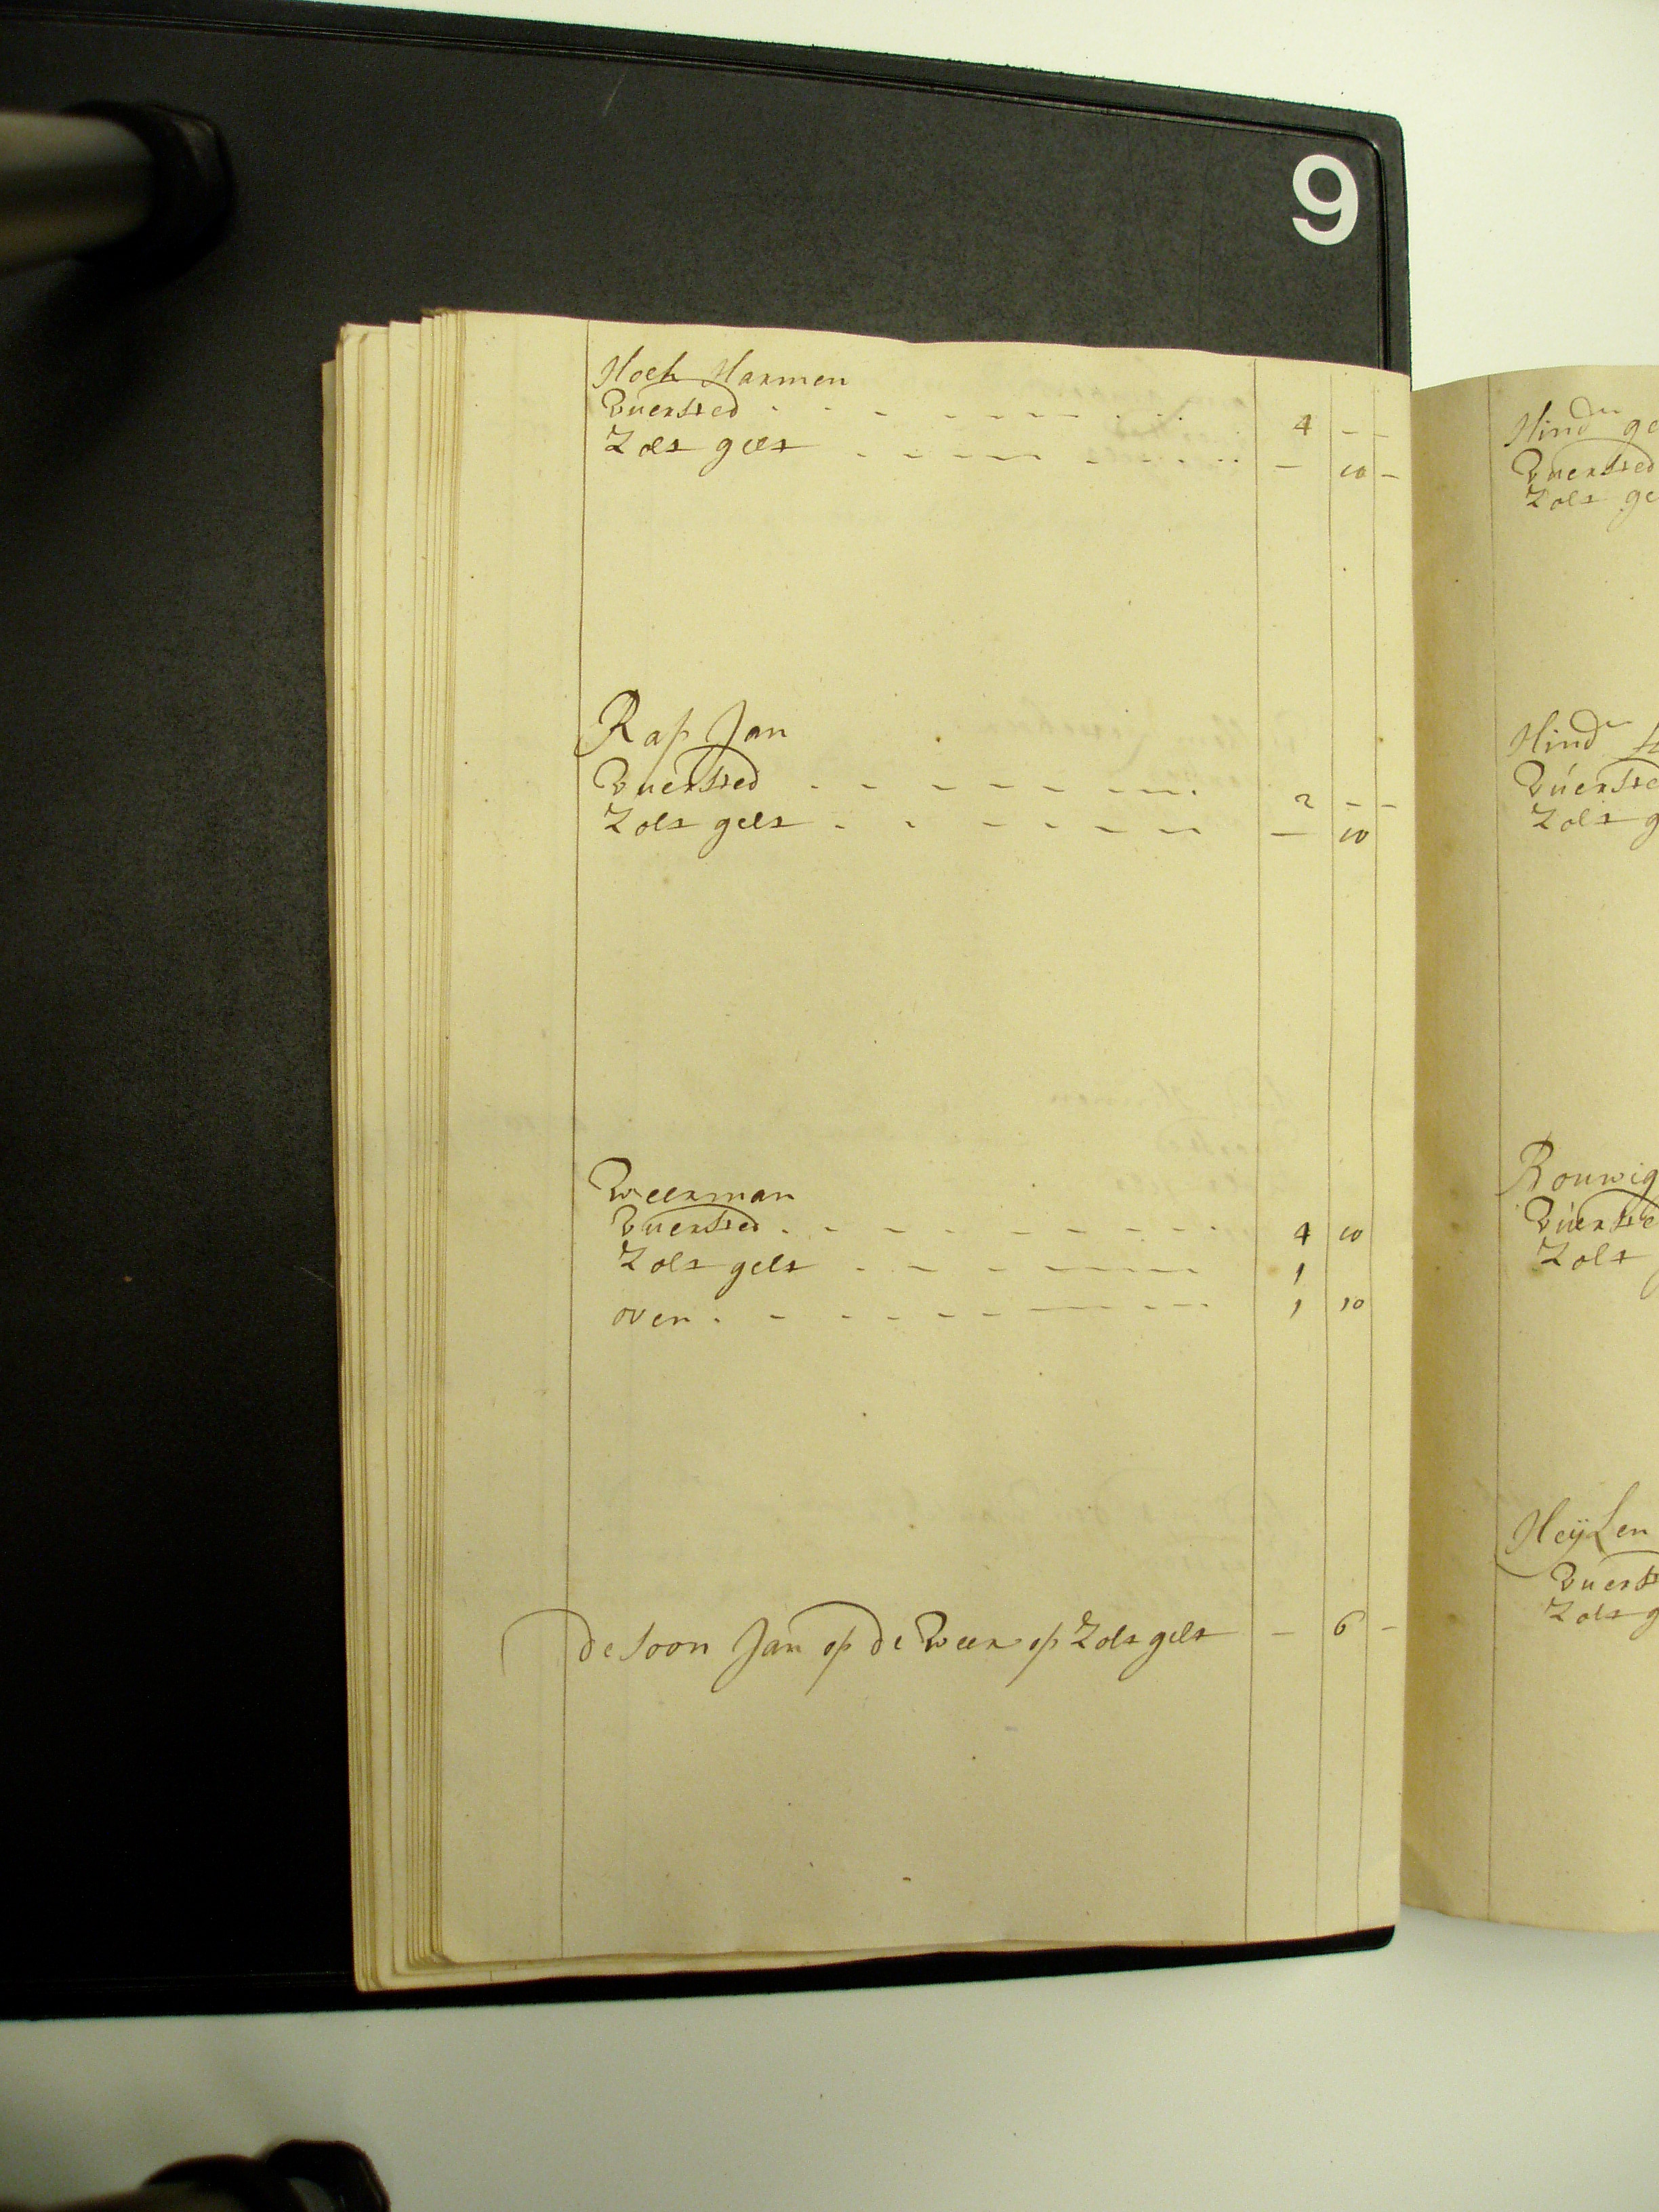 9
Hoek Harmen
Vuersted - - - - - - - - - 4 - -
Zols gels - - - - - - - - - - 10 -
Rap Jan
Vuersted - - - - - - - - 2 - -
Zols gels - - - - - - - - 10
Weerman
Vuersted - - - - - - - - - 4 10
Zols gels - - - - - - - - 1
over - - - - - - - - - 1 10
de soon Jan op de Weer op Zols gels - 6 -
Hindr
Vuersted
Zols
Hindr
Vuerste
Zols g
Rouwig
Vuerste
Zols
Heijlen
Vuerst
Zols g